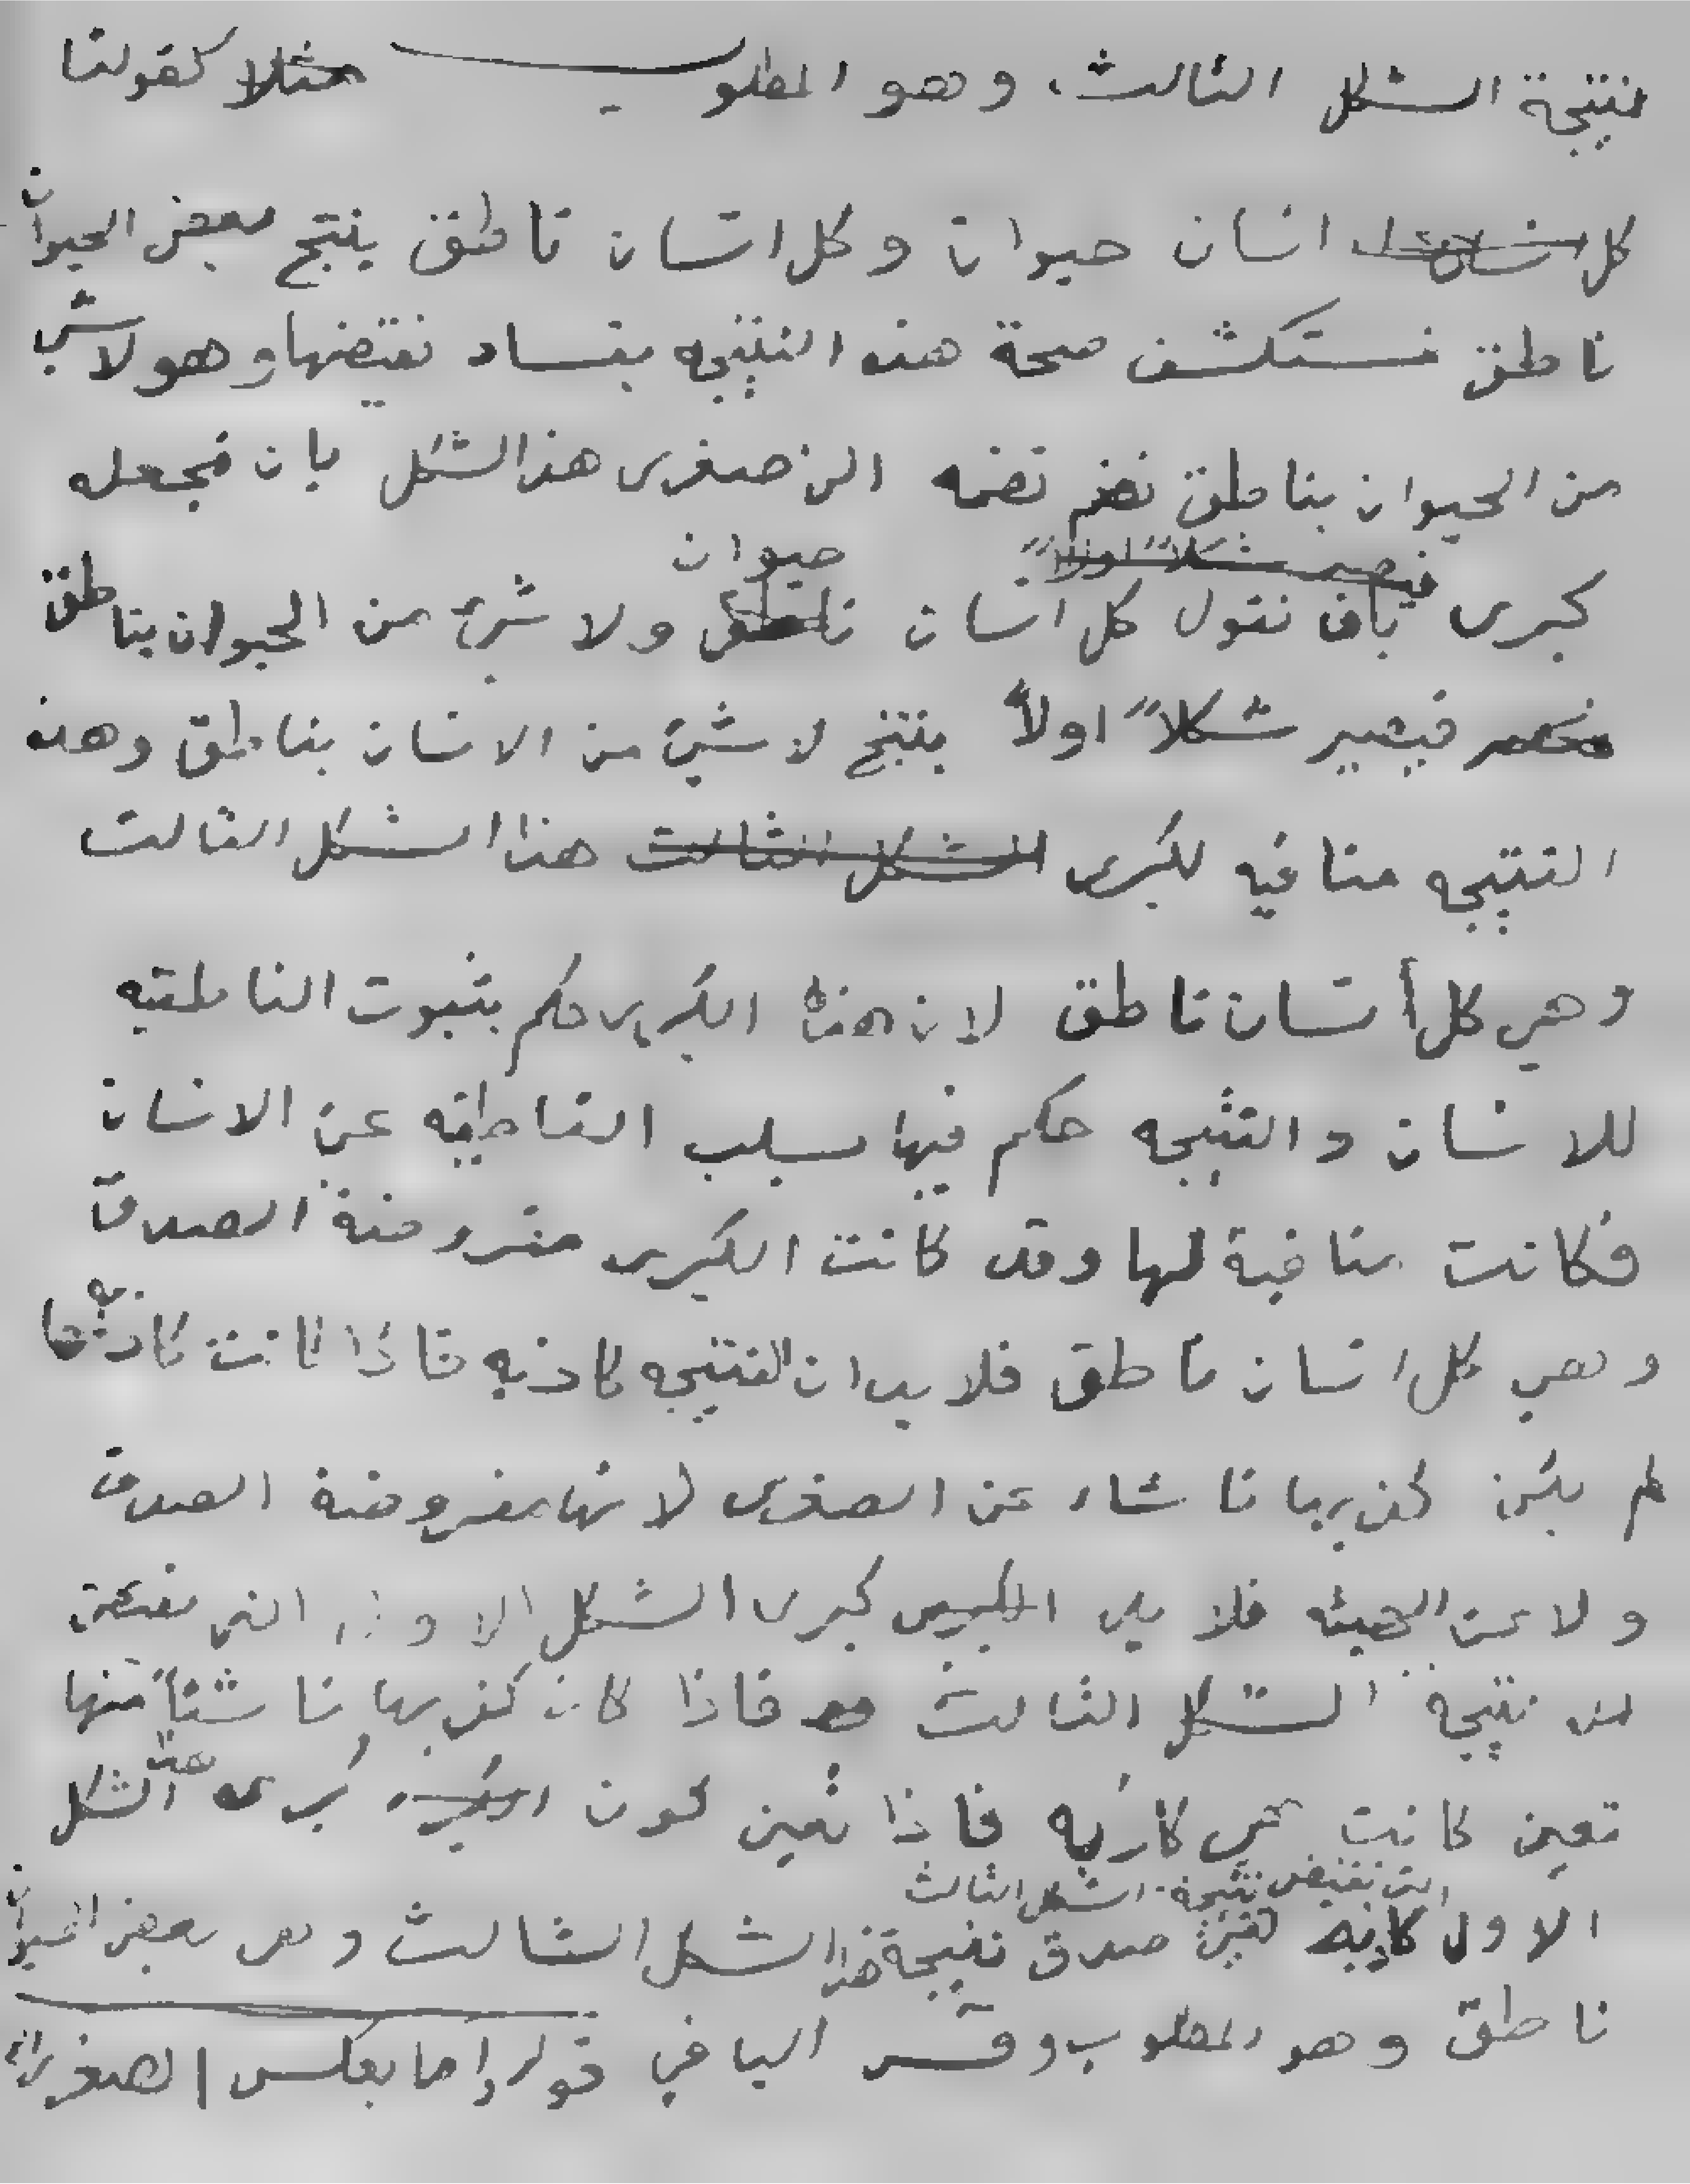 نتيجة الشكل الثالث، وهو المطلوب مثلا كقولنا
كل انسان حيوان وكل انسان ناطق ينتج بعض الحيوان
ناطق نستكشف صحة هذه النتيجه بفساد نقيضها وهو لا شي
من الحيوان بناطق نضمه الى صغرى هذا الشكل بان نجعله
كبرى بان نقول كل انسان حيوان ولا شيء من الحيوان بناطق
فيصير شكلاً اولاً ينتج لا شيء من الانسان بناطق وهذه
النتيجه منافيه لكبرى هذا الشكل الثالث
وهي كل أنسان ناطق لان هذه الكبرى حكم بثبوت الناطقيه
للانسان والنتيجه حكم فيها بسلب الناطقيه عن الانسان
فكانت منافية لها وقد كانت الكبرى مفروضة الصدق
وهي كل انسان ناطق فلا بد ان النتيجه كاذبه فاذا كانت كاذبه
لم يكن كذبها ناشاء عن الصغرى لانها مفروضة الصدق
ولا عن الهيئه فلا بد كبرى الشكل الاول التي نقيض
نتيجة الشكل الثالث فاذا كان كذبها ناشئاً منها
تعين كانت هي كاذبه فاذا تعين كون كبرى هذا الشكل
التي نقيض نتيجة الشكل الثالث
الاول كاذبه تعين صدق نتيجة هذا الشكل الثالث وهي بعض الحيوان
ناطق وهو المطلوب وقس الباقي قوله إما بعكس الصغرى